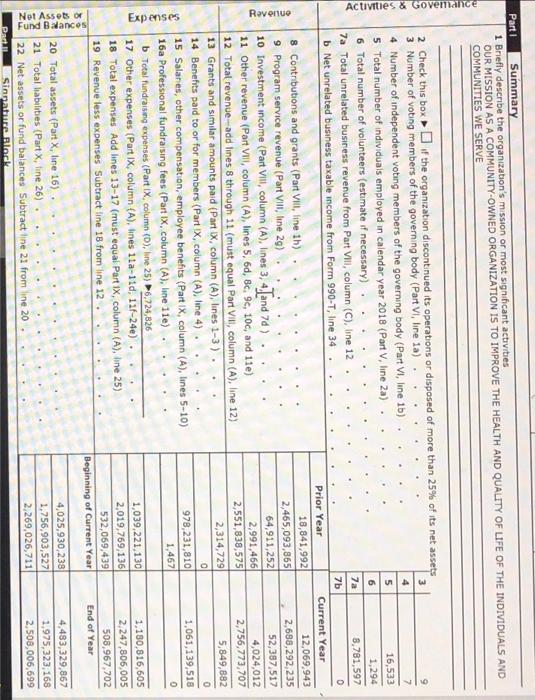 Part I Summary
1 Briefly describe the organization's mission or most significant activities
OUR MISSION AS A COMMUNITY-OWNED ORGANIZATION IS TO IMPROVE THE HEALTH AND QUALITY OF LIFE OF THE INDIVIDUALS AND
COMMUNITIES WE SERVE
Activities & Governance
2 Check this box ▶ ☐ if the organization discontinued its operations or disposed of more than 25% of its net assets
3 Number of voting members of the governing body (Part VI, line 1a) . . . . 3 9
4 Number of independent voting members of the governing body (Part VI, line 1b) . . . . 4 7
5 Total number of individuals employed in calendar year 2018 (Part V, line 2a) . . . . 5 16,533
6 Total number of volunteers (estimate if necessary) . . . . 6 1,294
7a Total unrelated business revenue from Part VIII, column (C), line 12 . . . . 7a 8,781,597
b Net unrelated business taxable income from Form 990-T, line 34 . . . . 7b 0
Prior Year Current Year
Revenue
8 Contributions and grants (Part VIII, line 1h) . . . . 18,841,992 12,069,943
9 Program service revenue (Part VIII, line 2g) . . . . 2,465,093,865 2,688,292,235
10 Investment income (Part VIII, column (A), lines 3, 4, and 7d) . . . . 64,911,252 52,387,517
11 Other revenue (Part VIII, column (A), lines 5, 6d, 8c, 9c, 10c, and 11e) 2,991,466 4,024,012
12 Total revenue—add lines 8 through 11 (must equal Part VIII, column (A), line 12) 2,551,838,575 2,756,773,707
Expenses
13 Grants and similar amounts paid (Part IX, column (A), lines 1–3) . . . . 2,314,729 5,849,882
14 Benefits paid to or for members (Part IX, column (A), line 4) . . . . 0 0
15 Salaries, other compensation, employee benefits (Part IX, column (A), lines 5–10) 978,231,810 1,061,139,518
16a Professional fundraising fees (Part IX, column (A), line 11e) . . . . 1,467 0
b Total fundraising expenses (Part IX, column (D), line 25) ▶6,724,826
17 Other expenses (Part IX, column (A), lines 11a–11d, 11f–24e) . . . . 1,039,221,130 1,180,816,605
18 Total expenses Add lines 13–17 (must equal Part IX, column (A), line 25) 2,019,769,136 2,247,806,005
19 Revenue less expenses Subtract line 18 from line 12 . . . . 532,069,439 508,967,702
Beginning of Current Year End of Year
Net Assets or
Fund Balances
20 Total assets (Part X, line 16) . . . . 4,025,930,238 4,483,329,867
21 Total liabilities (Part X, line 26) . . . . 1,756,903,527 1,975,323,168
22 Net assets or fund balances Subtract line 21 from line 20 . . . . 2,269,026,711 2,508,006,699
Part II Signature Block